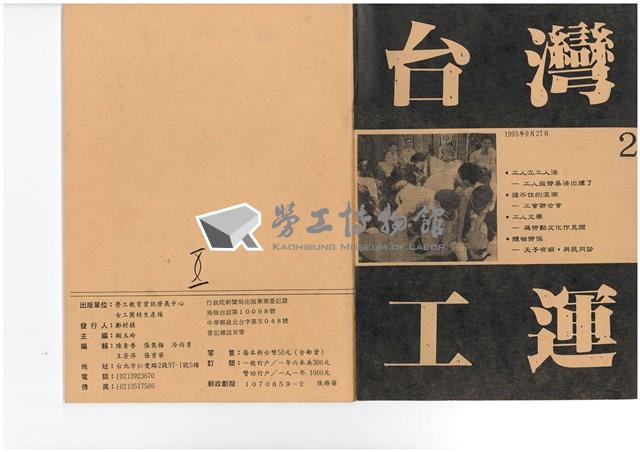 台灣
1993年9月27日
2
•工人立工人法
—工人版勞基法出爐了
•擋不住的浪潮
—工會聯合會
•工人文學
—為勞動文化作見證
•體檢勞保
—天子有病，與民同診
工運
勞工博物館
KAOHSIUNG MUSEUM OF LABOR
出版單位：勞工教育資訊發展中心
女工團結生產線
發行人：鄭村棋
主編：顧玉玲
編輯：陳素香 張 梅 冷尚書
王芳萍 張育華
地址：台北市仁愛路2段97-1號5樓
電話：(02)3923670
傳真：(02)3517580
行政院新聞局出版事業登記證
局版台誌第10098號
中華郵政北台字第5048號
登記雜誌交寄
零售：每本新台幣50元（含郵資）
訂閱：一般訂戶／一年六本共300元
贊助訂戶／一人一年1000元
郵政劃撥：1070859-2